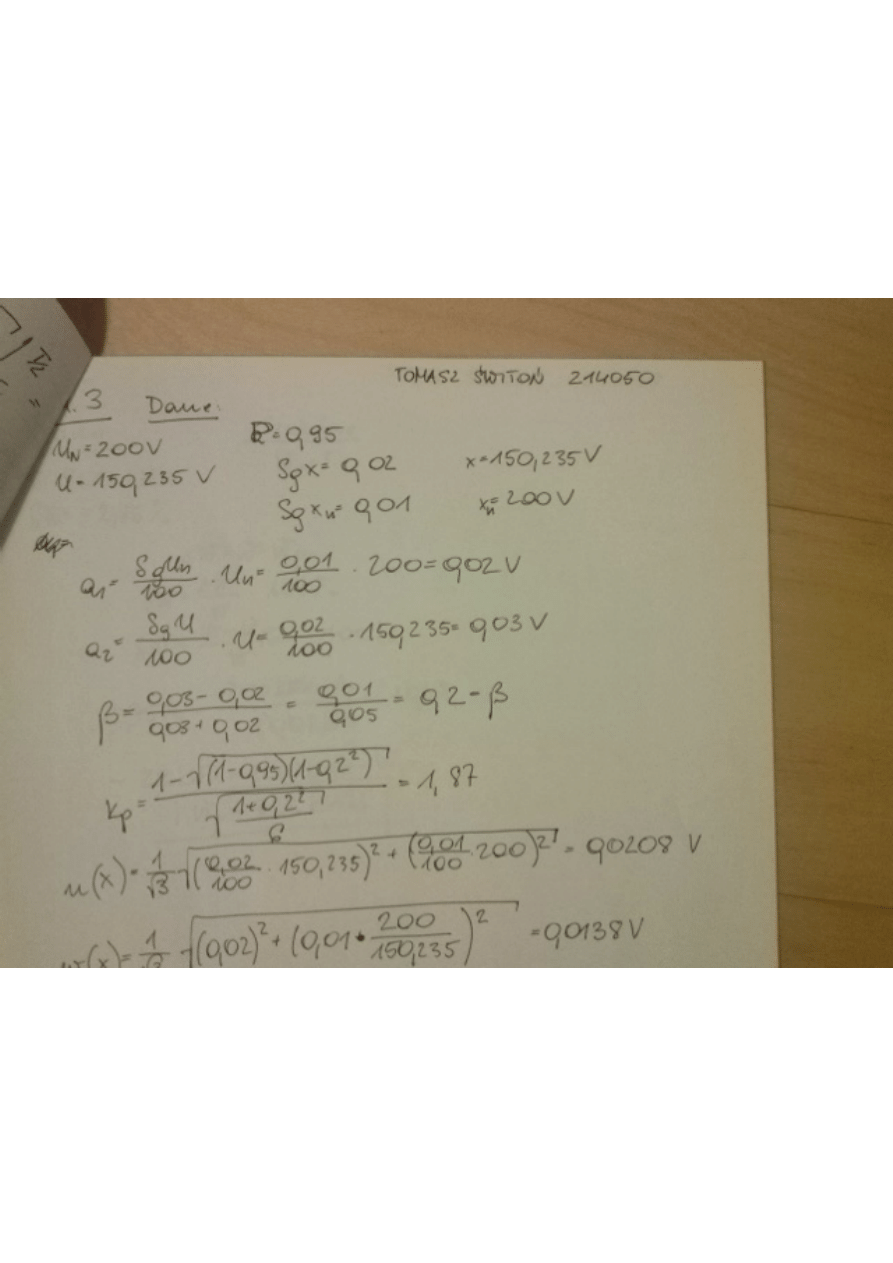 TOMASZ ŚWITOŃ 214050
.3 Dane:
U_N=200V P=0,95
U=150,235 V δgx=0,02 x=150,235V
δgx_n=0,01 x_n=200V
a₁= δgUn/100 · Un= 0,01/100 · 200=0,02V
a₂= δgU/100 · U= 0,02/100 · 150,235= 0,03V
β= 0,03-0,02/0,03+0,02 = 0,01/0,05 = 0,2-β
kp= 1-√(1-0,95)(1-0,2²)/√1+0,2²/6 = 1,87
u(x)= 1/√3 √(0,02/100 · 150,235)²+(0,01/100 · 200)² = 0,0208 V
(x)= 1/√3 √(0,02)²+(0,01· 200/150,235)² =0,0138V